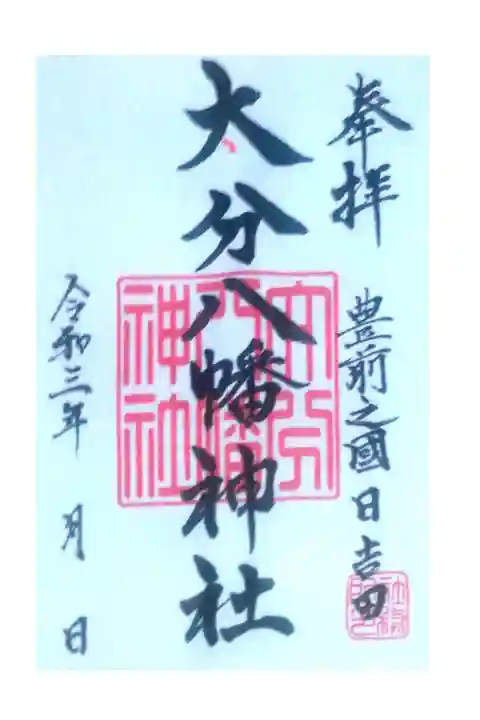 奉拝
豊前之國日吉田
大分八幡神社
大分八幡神社
令和三年 月 日